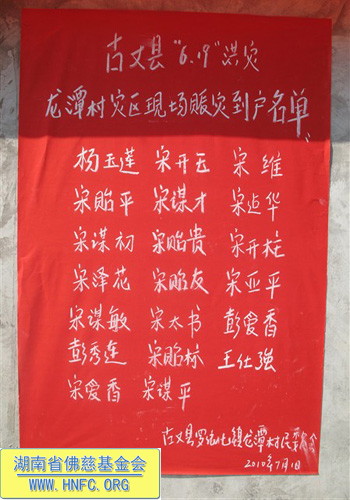 古丈县“6.19”洪灾
龙潭村灾区现场赈灾到户名单
杨玉莲 宋开玉 宋维
宋贻平 宋谋才 宋贞华
宋谋初 宋贻贵 宋开柱
宋泽花 宋贻友 宋亚平
宋谋敏 宋太书 彭爱香
彭秀莲 宋贻标 王仕强
宋爱香 宋谋平
古丈县罗依溪镇龙潭村民委会
2010年7月1日
湖南省佛慈基金会
WWW.HNFC.ORG